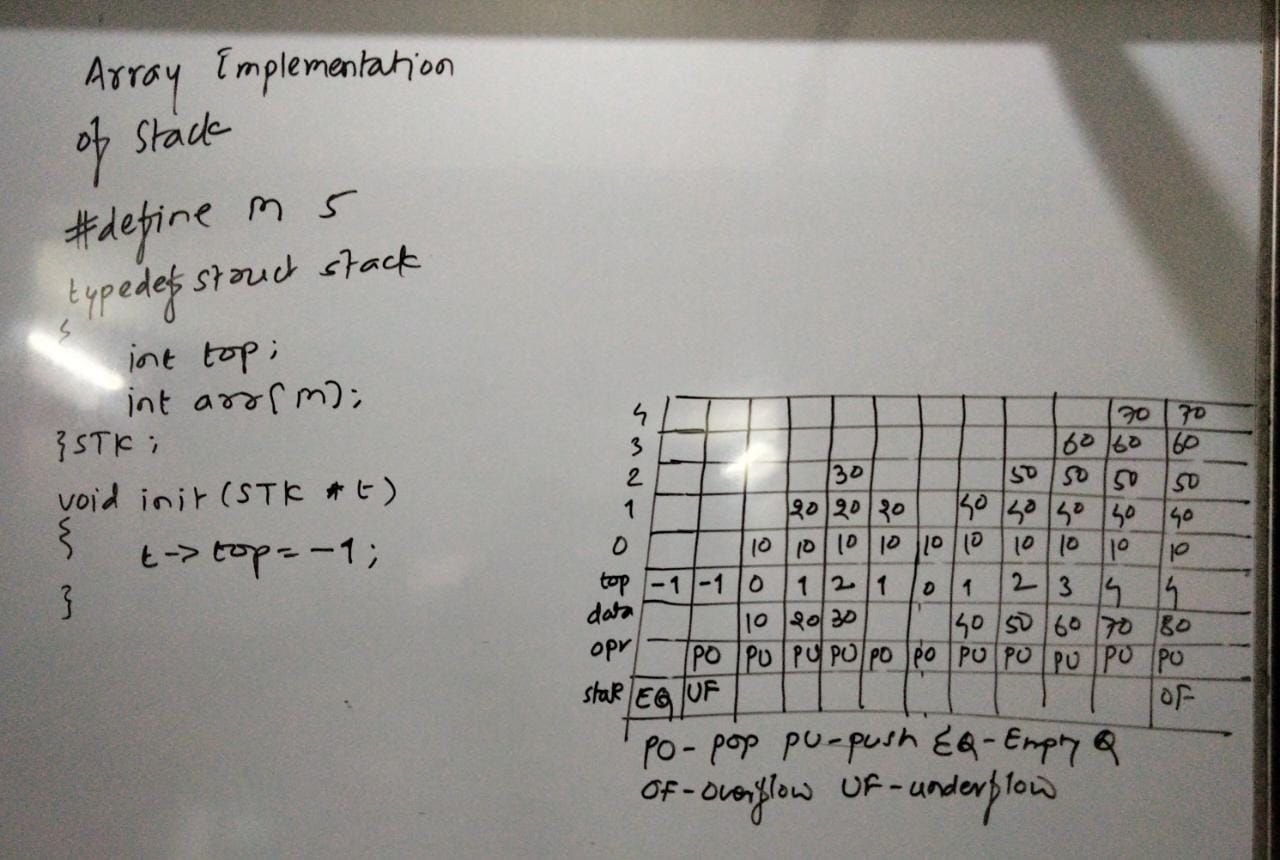 Array Implementation
of Stack
#define m 5
typedef struct stack
{
int top;
int arr[m];
}STK;
void init(STK *t)
{
t->top=-1;
}
4 70 70
3 60 60 60
2 30 50 50 50 50
1 20 20 20 40 40 40 40 40
0 10 10 10 10 10 10 10 10 10 10
top -1 -1 0 1 2 1 0 1 2 3 4 4
data 10 20 30 40 50 60 70 80
opr PO PU PU PU PO PO PU PU PU PU PU
EQ UF OF
PO- pop PU-push EQ-Empty Q
OF-overflow UF-underflow